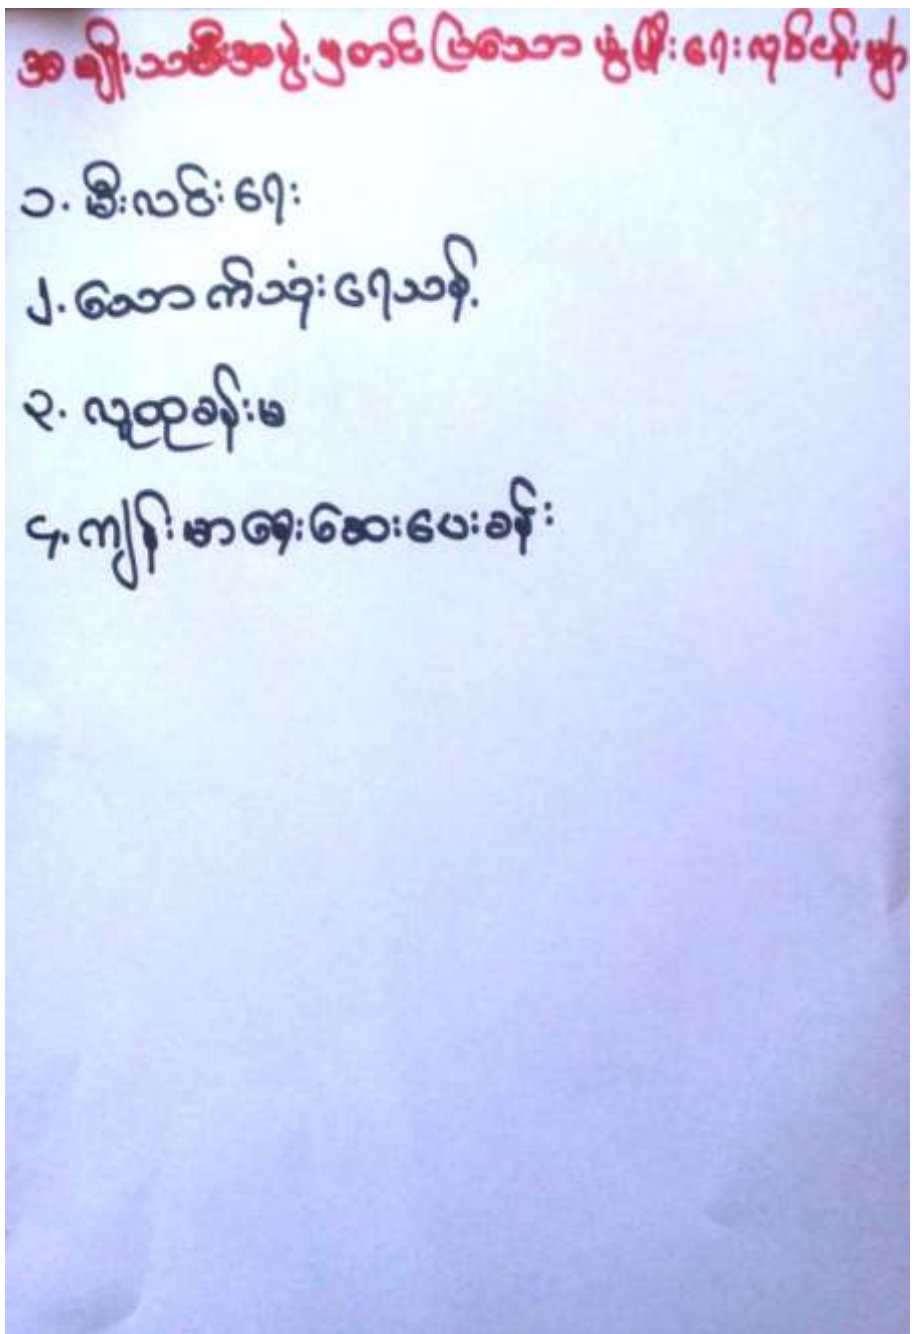 အမျိုးသမီးအဖွဲ့မှတင်ပြသော ဖွံ့ဖြိုးရေးလုပ်ငန်းများ
၁. မီးလင်းရေး
၂. သောက်သုံးရေသန့်
၃. လူထုခန်းမ
၄. ကျန်းမာရေးဆေးပေးခန်း